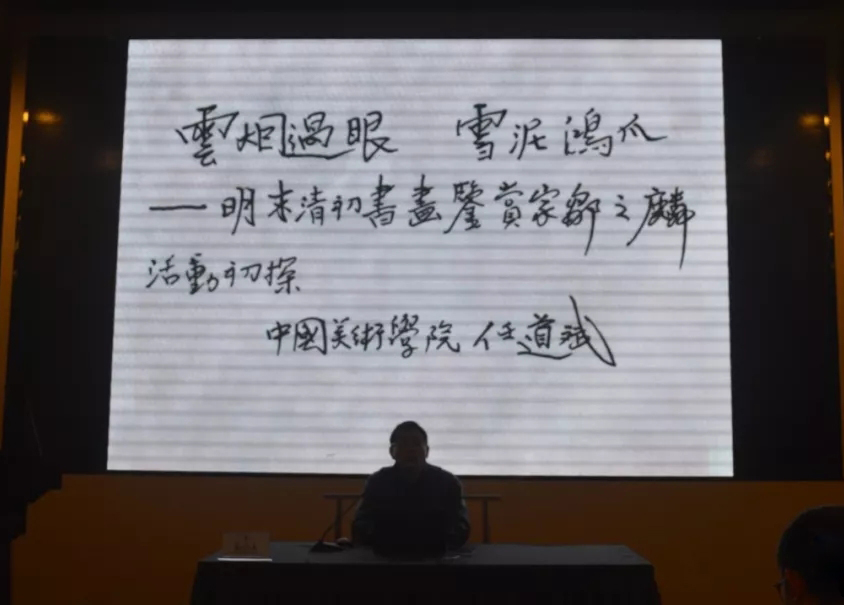 雲烟過眼　雪泥鴻爪
——明末清初書畫鑒賞家鄒之麟
活動初探
中國美術學院 任道斌